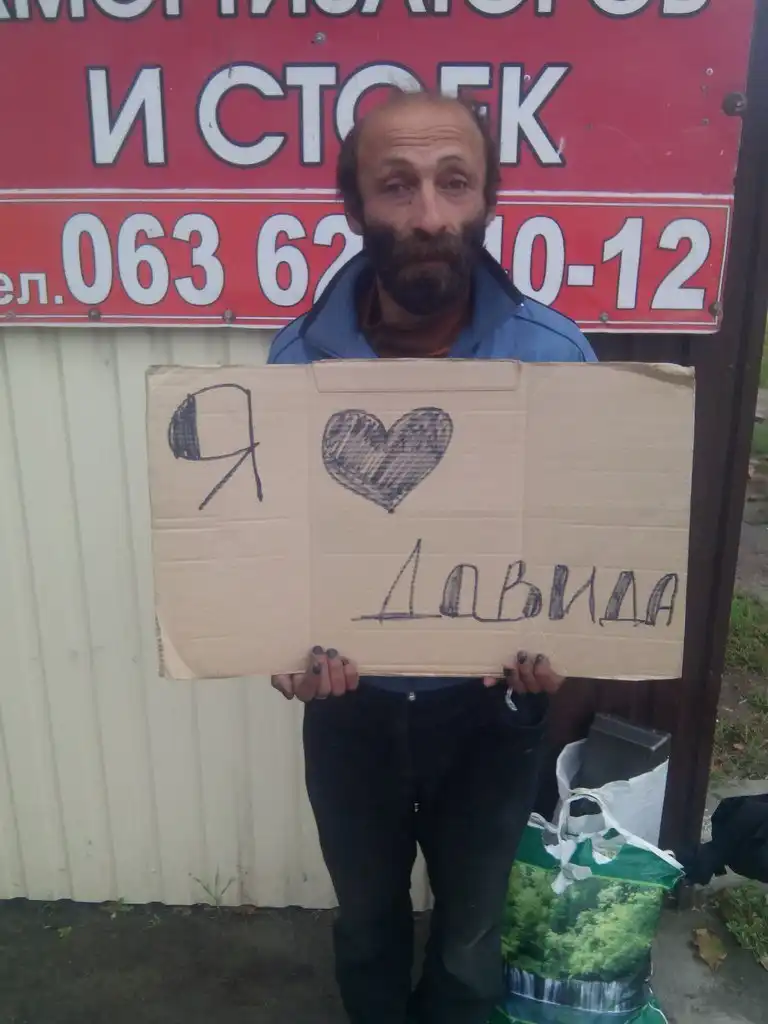 АМОРТИЗАТОРОВ
И СТОЕК
тел. 063 62 10-12
Я ♥
ДАВИДА